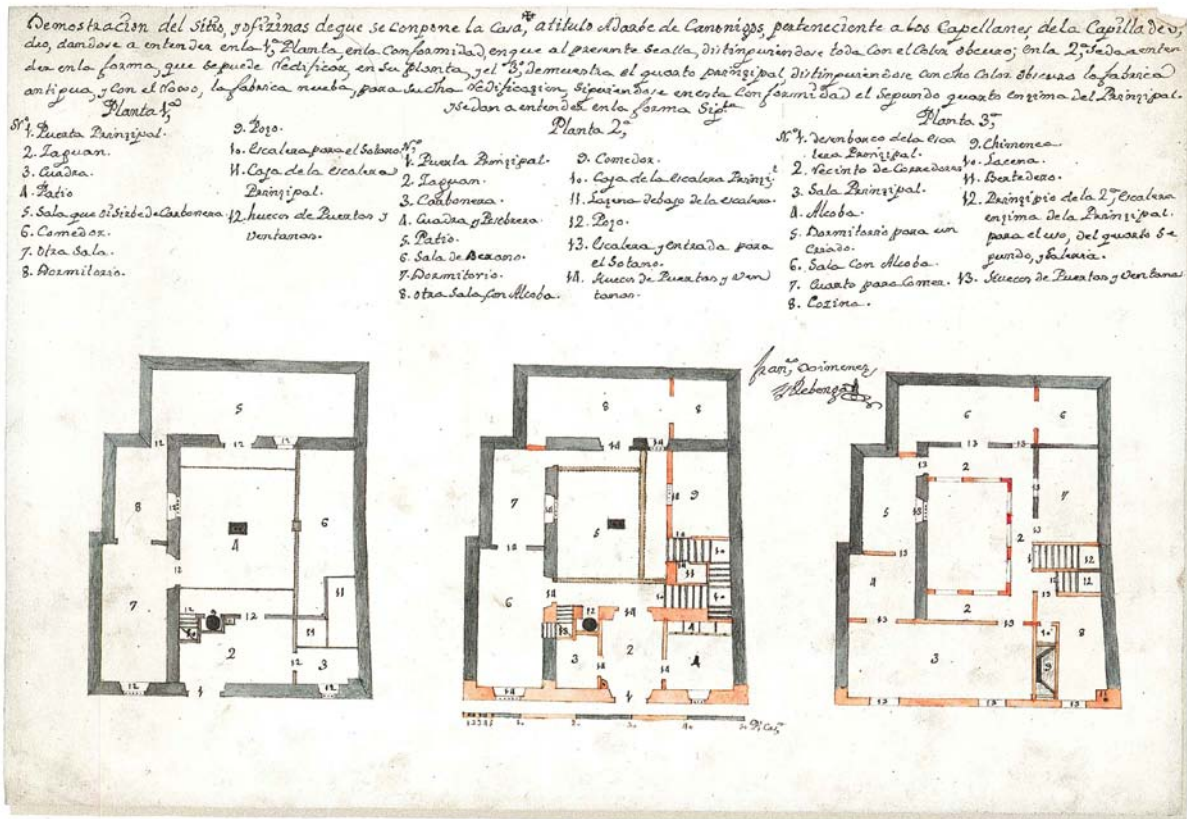 Demostracion del Sitio, y ofizinas de que se conpone la Casa, a titulo Adarbe de Canonigos, perteneciente a los Capellanes de la Capilla de
dro, dandose a entender en la 1ª Planta, en la Conformidad, en que al presente Sealla, distinguiendose toda Con el Color obscuro; en la 2ª Seda a enten
der en la forma, que Sepuede Redificar, en Su planta, y el 3º, demuestra el quarto prinzipal, distinguiendose Con dho Color obscuro la fabrica
antigua, y con el Roxo, la fabrica nueba, para Su dha Redificazion, Siguiendose en esta Conformidad el Segundo quarto enzima del Prinzipal.
y Sedan a entender en la forma Sigte
Planta 1ª
Nº 1. Puerta Prinzipal.
2. Zaguan.
3. Cuadra.
4. Patio
5. Sala que Sirbe de Carbonera
6. Comedor.
7. Otra Sala.
8. Dormitorio.
9. Pozo.
10. escalera para el Sotano.
11. Caja de la escalera
Prinzipal.
12. huecos de Puertas y
Ventanas.
Planta 2ª
Nº 1. Puerta Prinzipal.
2. Zaguan.
3. Carbonera.
4. Cuadra y Pesebrera
5. Patio.
6. Sala de Berano.
7. Dormitorio.
8. otra Sala con Alcoba.
9. Comedor.
10. Caja de la escalera Prinzil
11. Lazena debajo de la escalera.
12. Pozo.
13. escalera y entrada para
el Sotano.
14. Huecos de Puertas y Ven
tanas.
Planta 3ª
Nº 1. desenbarco de la esca
lera Prinzipal.
2. Recinto de Corredores
3. Sala Prinzipal.
4. Alcoba.
5. Dormitorio para un
Criado.
6. Sala Con Alcoba.
7. Cuarto para Comer.
8. Cozina.
9. Chimenea
10. Lacena.
11. Bertedero.
12. Prinzipio de la 2ª escalera
enzima de la Prinzipal.
para el uso, del quarto Se
gundo, y Galeria.
13. Huecos de Puertas y Ventana
franco Ximenez